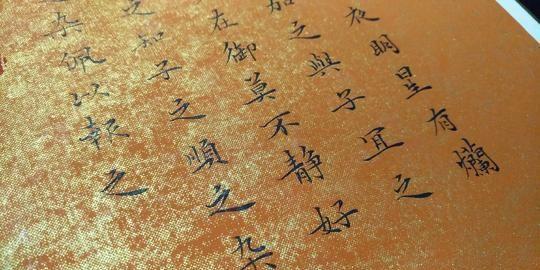 夜明星有爛
加之與子宜之
在御莫不静好
之知子之順之杂
之杂佩以報之